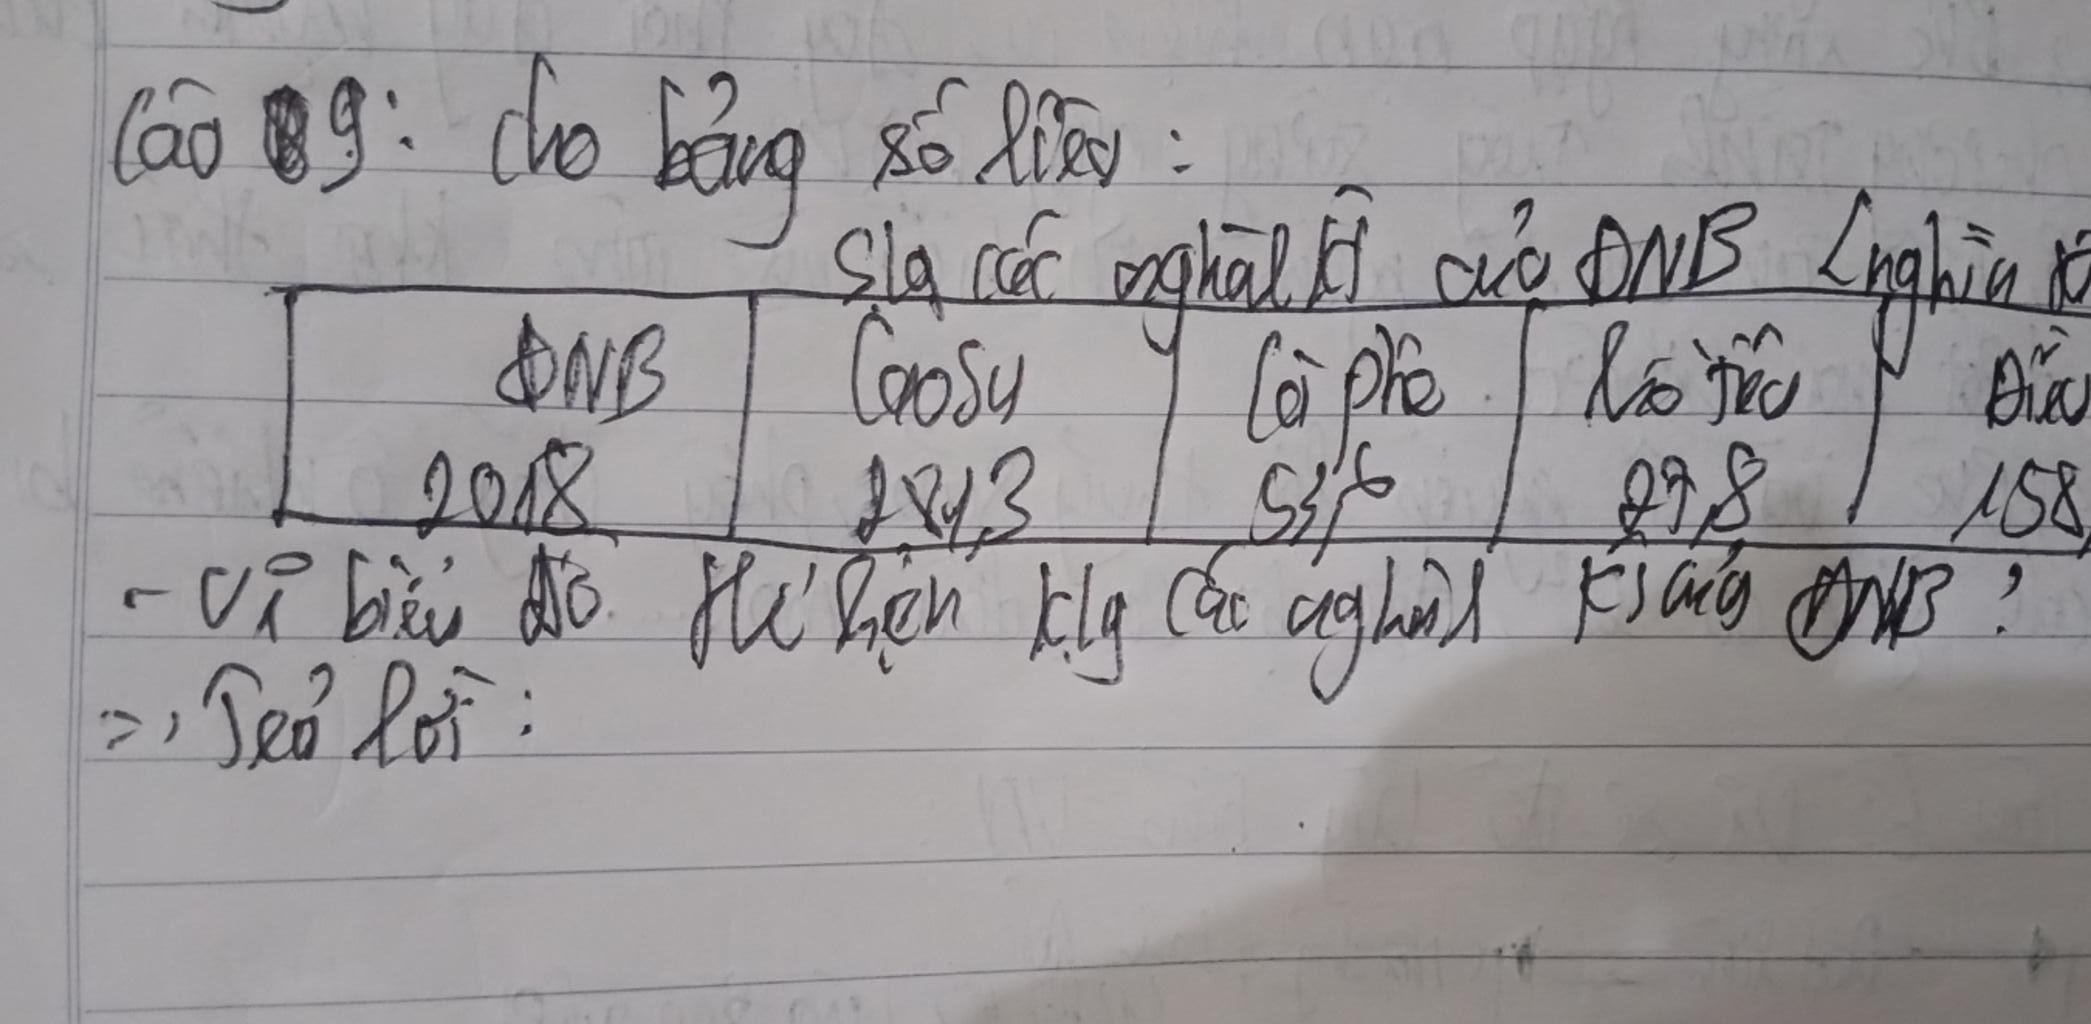 Câu 9: Cho bảng số liệu:
Slg các nghàl kt của ĐNB (nghìn
ĐNB Cao su Cà phê Điều
2018 53,6 27,8 158,
- Vẽ biểu đồ thể hiện klg các của ĐNB?
=> Trả lời: